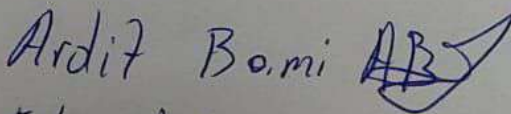 Ardit Bami AB